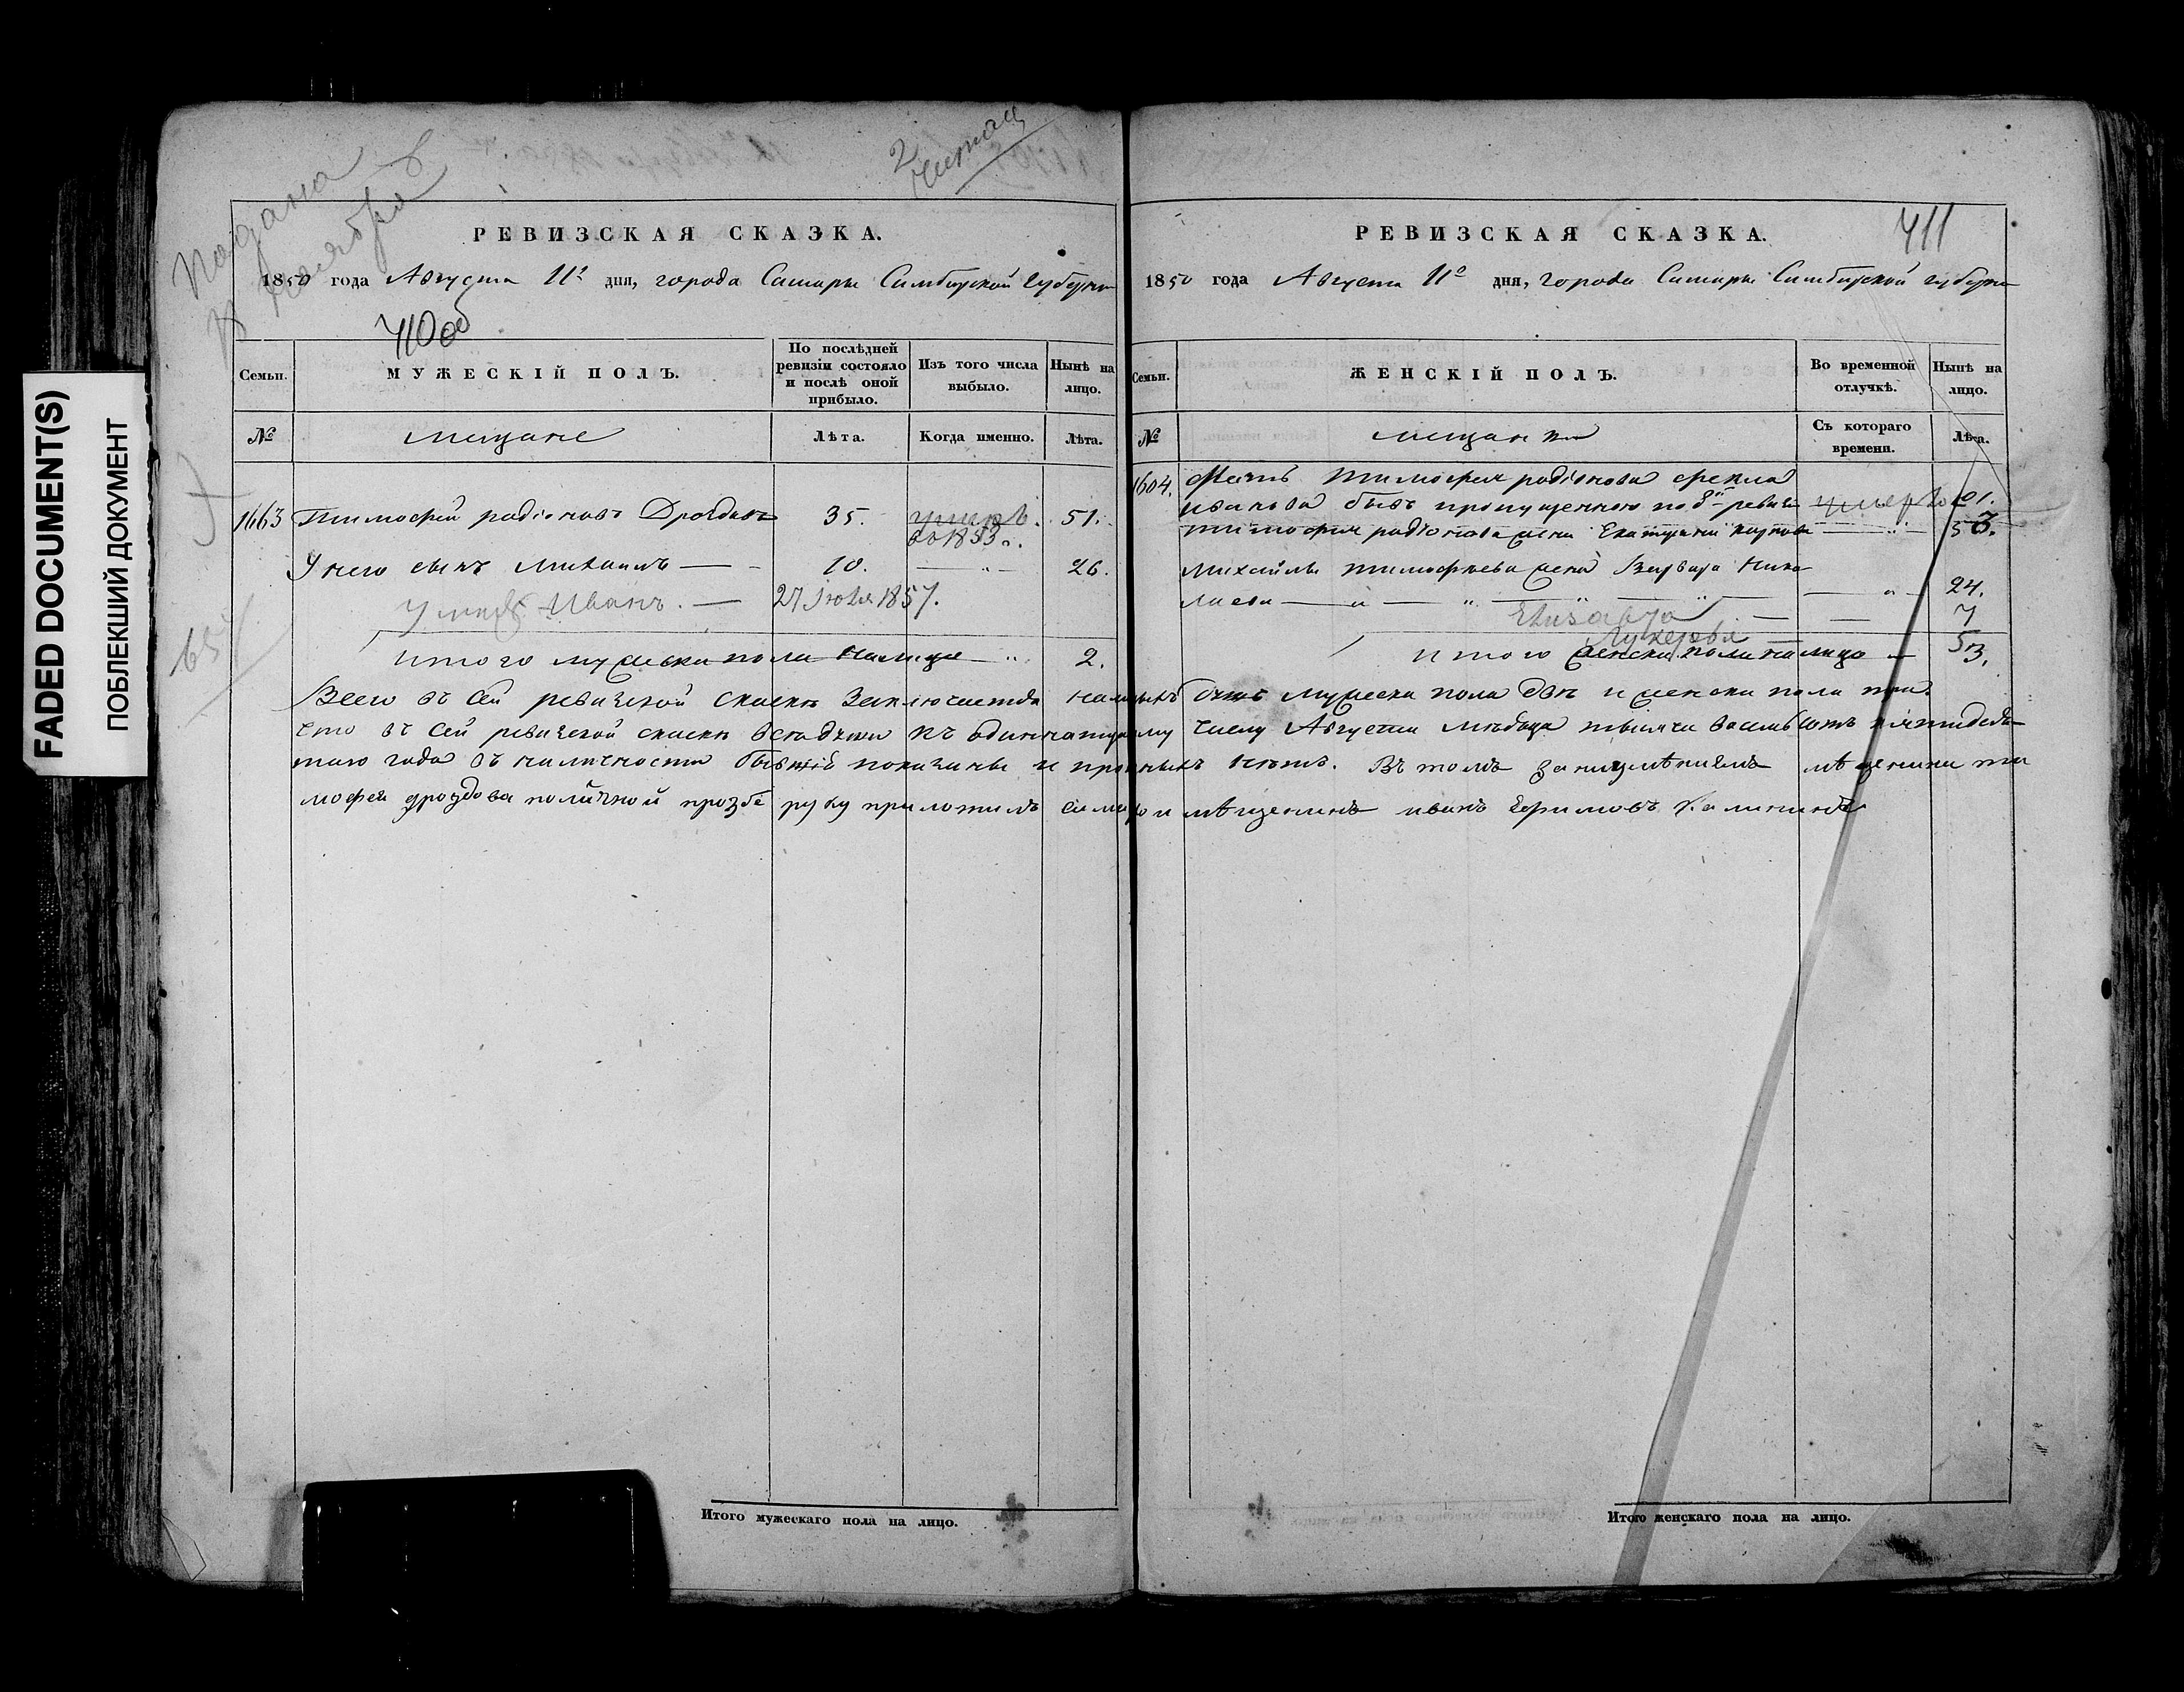 FADED DOCUMENT(S)
ПОБЛЕКШИЙ ДОКУМЕНТ
Подана
8 Ноября
2
читал
РЕВИЗСКАЯ СКАЗКА.
1850 года Августа 11го дня, города Самары Симбирской губерни
410об
Семьи.
МУЖЕСКІЙ ПОЛЪ.
По послѣдней ревизіи состояло и послѣ оной прибыло.
Изъ того числа выбыло.
Нынѣ на лицо.
№
мещане
Лѣта.
Когда именно.
Лѣта.
1663 Тимофей родіоновъ Дроздовъ 35. умеръ. 51.
въ 1853
У него сынъ Михаилъ — 10. — " — 26.
У него Иванъ. — 27 Іюля 1857.
Итого мужеска пола налицо — " 2.
РЕВИЗСКАЯ СКАЗКА.
411
1850 года Августа 11го дня, города Самары Симбирской губерни
Семьи.
ЖЕНСКІЙ ПОЛЪ.
Во временной отлучкѣ.
Нынѣ на лицо.
№
мещанки
Съ котораго времени.
Лѣта.
1604. Мать Тимофея родіонова Фекла
иванова бывъ пропущенною по 8й ревизи умерла
тимофея родіонова жена Екатерина карпова — " — 53.
Михайлы тимофеева жена Варвара Нико
лаева — " — " — " — " — 24.
Елизавета — — 7
Лукерья — 5
Итого женска пола налицо — 3.
Всего въ сей ревизской сказке заключается наличныхъ душъ мужеска пола две и женска пола три.
что въ сей ревизской сказки все души къ одиннатцатому числу Августа месяца тысяча восемьсотъ пятидеся
таго года въ наличности бывшіе показаны и прописныхъ нетъ. Въ томъ мѣщенина ти
мофея дроздова поличной прозбе руку приложилъ мѣщенинъ иванъ Ефимовъ Калининъ
Итого мужескаго пола на лицо.
Итого женскаго пола на лицо.